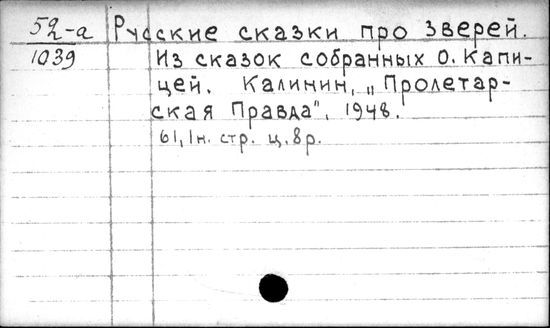 52-а Русские сказки про зверей.
1039 Из сказок собранных О. Капи-
цей. Калинин, „Пролетар-
ская Правда", 1948.
61,1н. стр. ц. 8р.